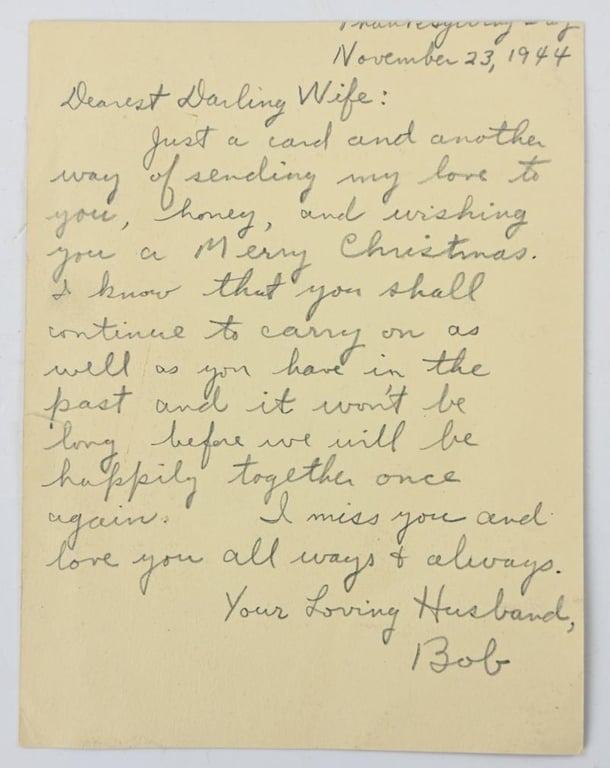 Thanksgiving Day
November 23, 1944
Dearest Darling Wife:
Just a card and another
way of sending my love to
you, honey, and wishing
you a Merry Christmas.
I know that you shall
continue to carry on as
well as you have in the
past and it won't be
long before we will be
happily together once
again. I miss you and
love you all ways & always.
Your Loving Husband,
Bob